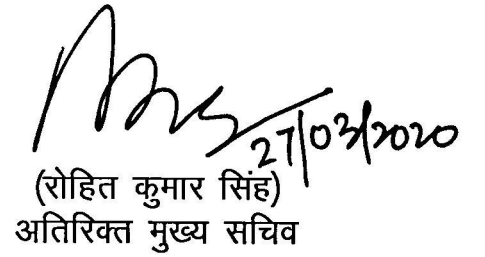 27/03/2020
(रोहित कुमार सिंह)
अतिरिक्त मुख्य सचिव